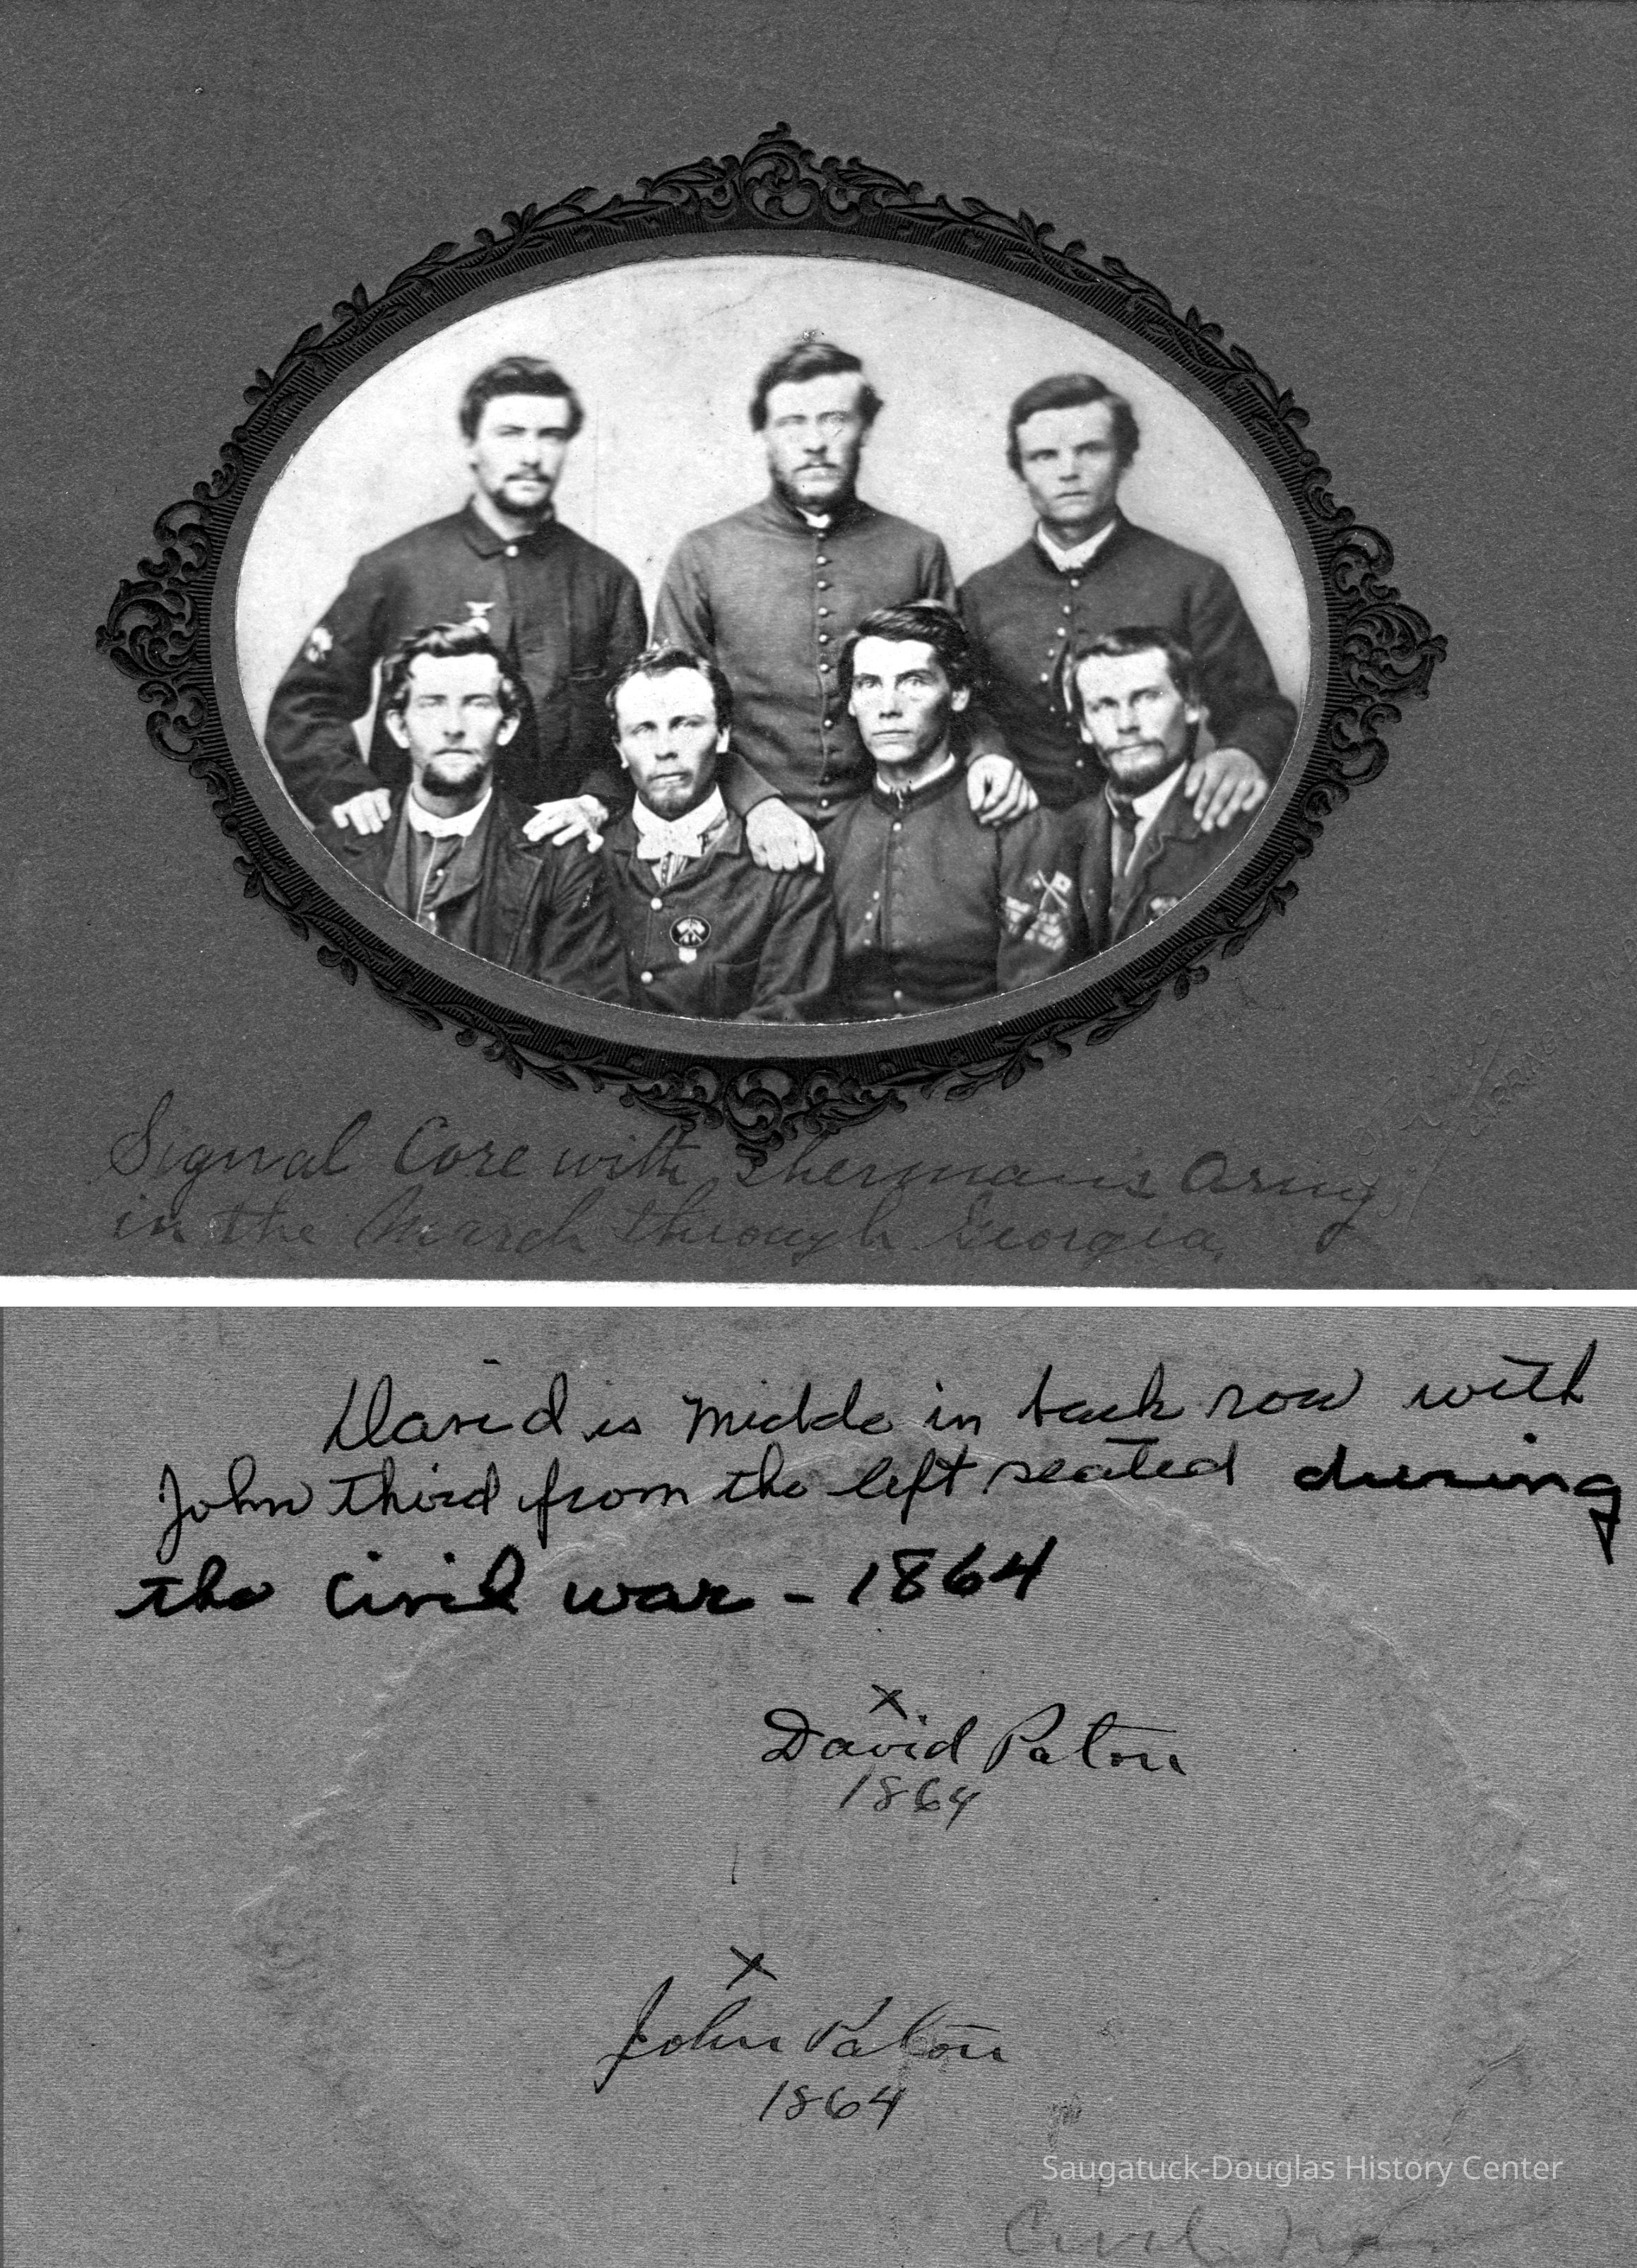 Signal Core with Sherman's Army
in the March through Georgia.
David is middle in back row with
John third from the left seated during
the Civil war - 1864
x
David Paton
1864
x
John Paton
1864
Saugatuck-Douglas History Center
Civil